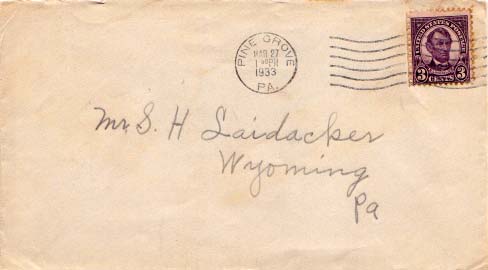 PINE GROVE
MAR 27
1 30 PM
1933
PA.
UNITED STATES POSTAGE
LINCOLN
3 CENTS 3
Mr. S. H Laidacker
Wyoming
Pa